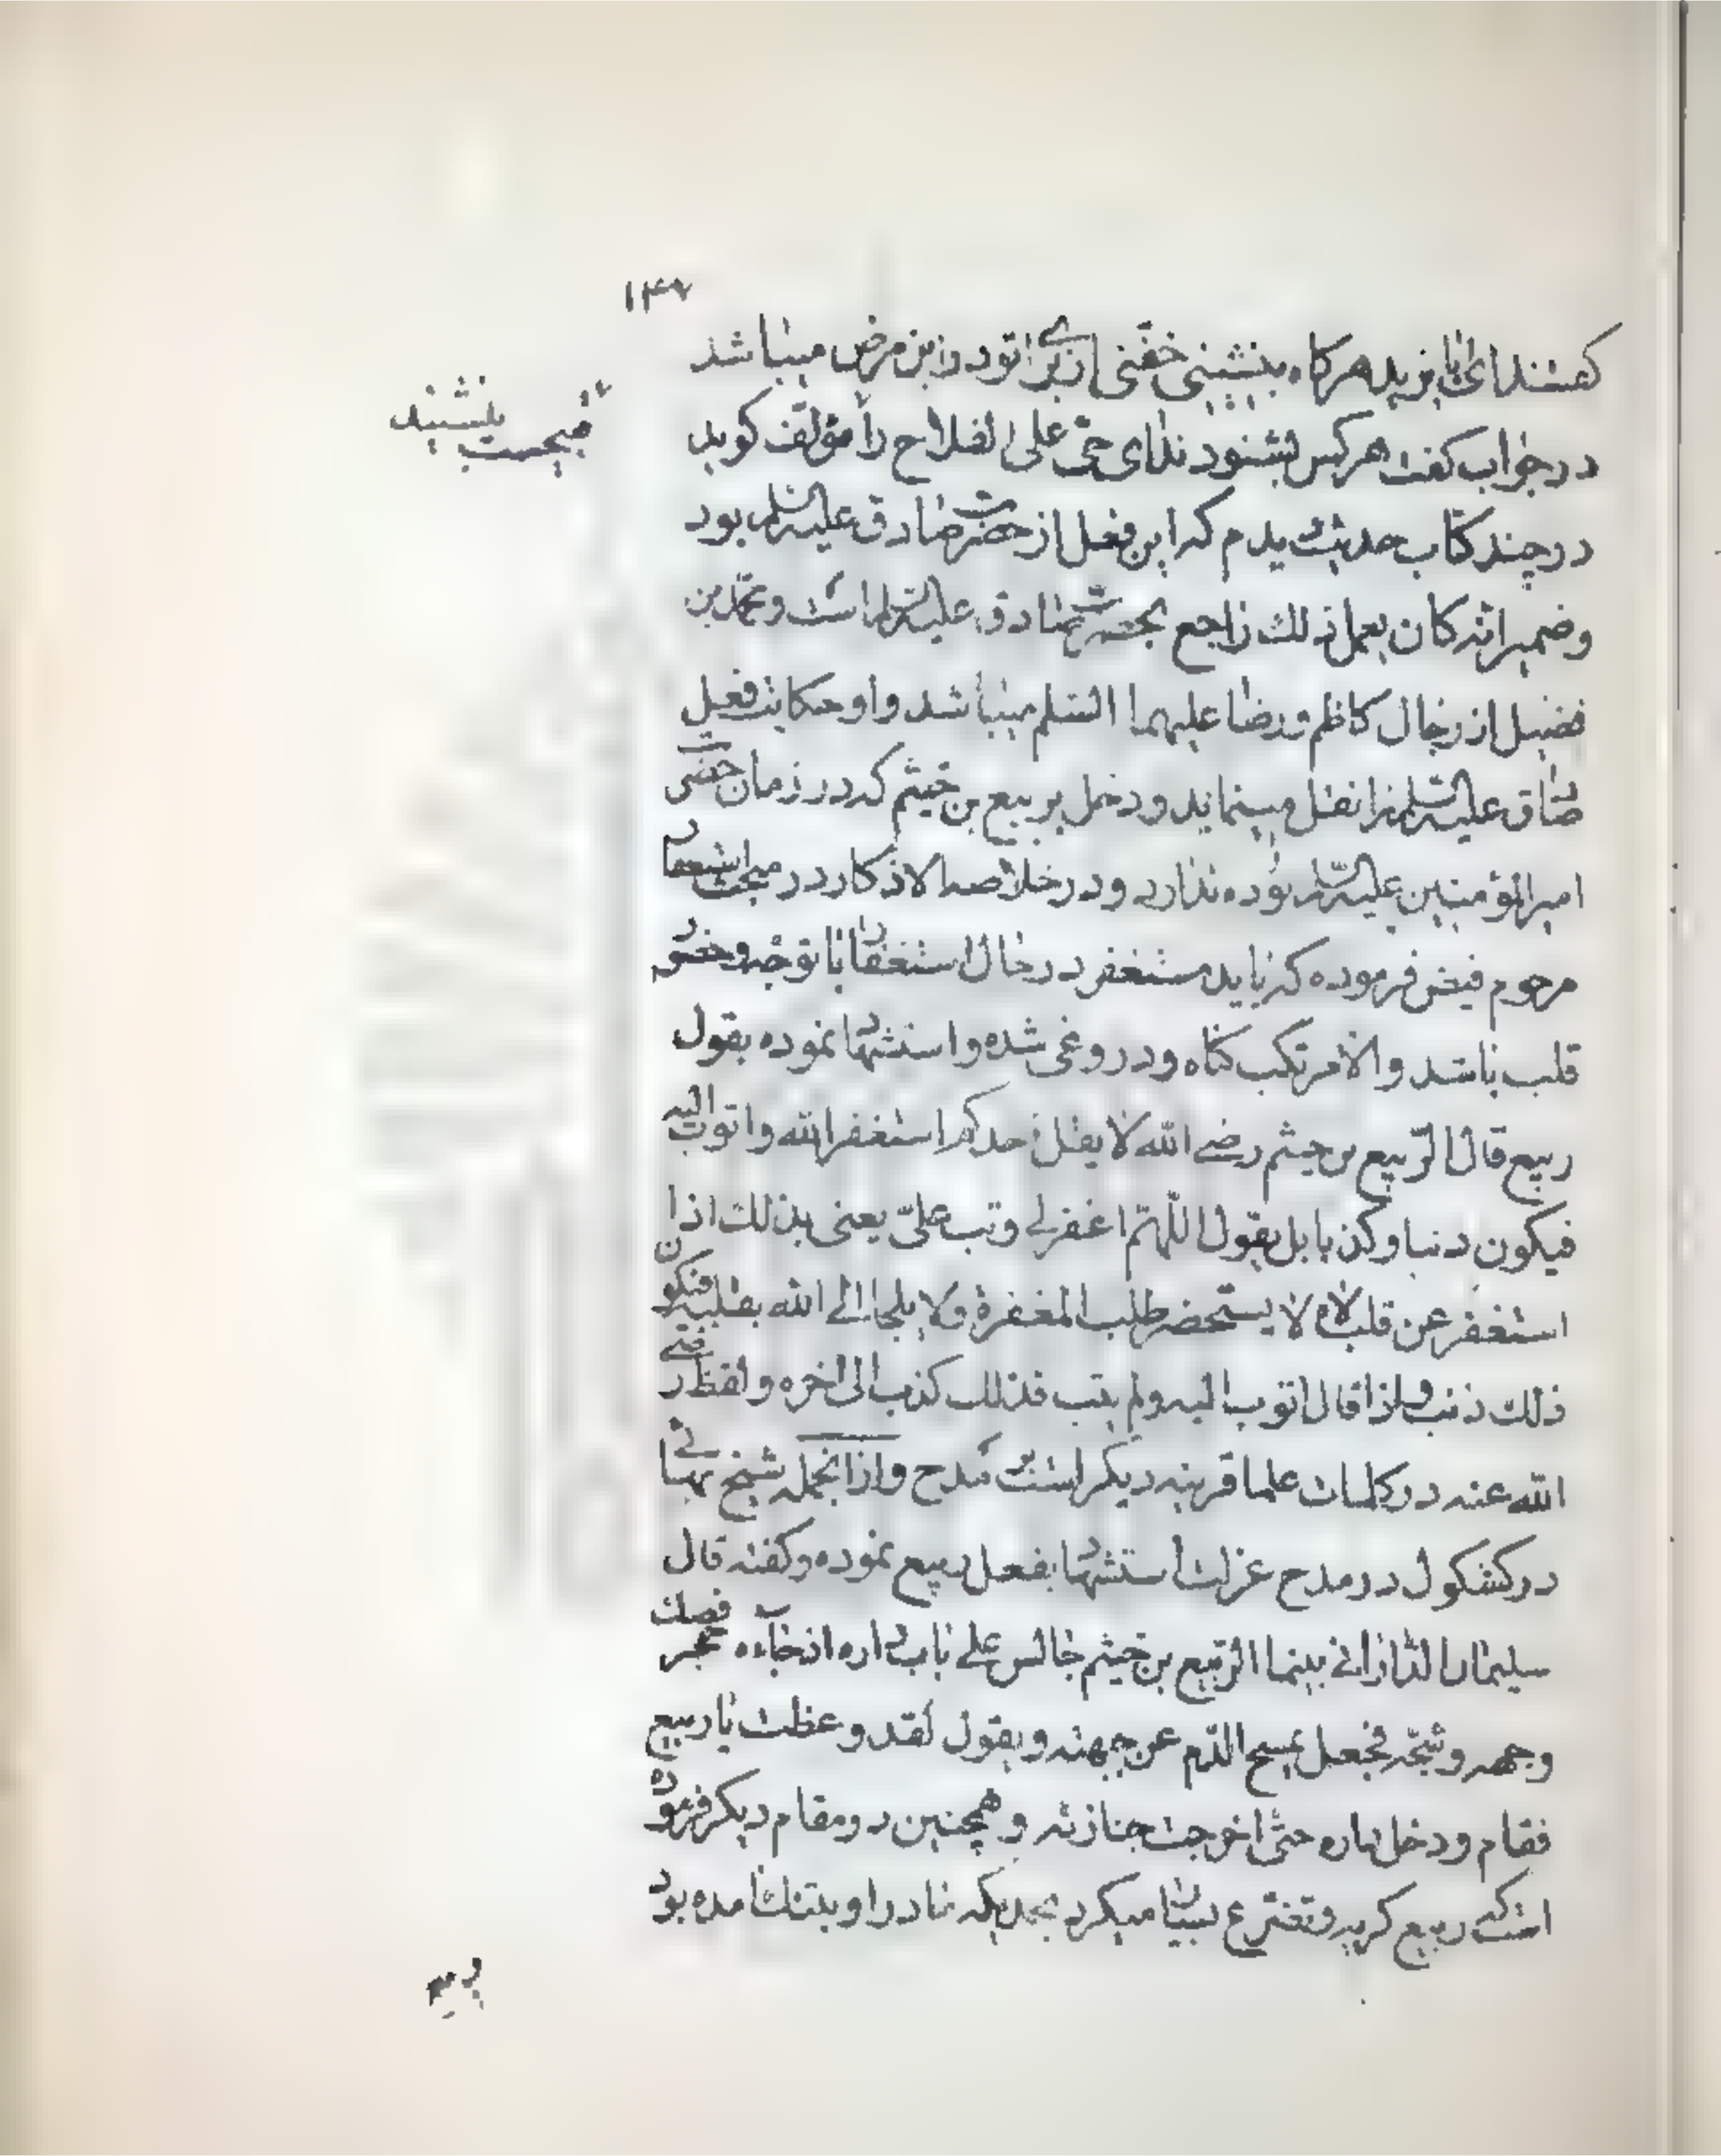 ۱۴۷
گفتند ای بایزید هرگاه بنشینی خفتی از برای تو در این مرض میباشد
در جواب گفت هرکس بشنود ندای حی علی الفلاح را مؤلف گوید
در چند کتاب حدیث دیدم که این فعل از حضرت صادق علیه السلام بود
و ضمیر انه کان یعمل ذلك راجع بحضرت صادق علیه السلام است و محمد بن
فضیل از رجال کاظم و رضا علیهما السلم میباشد و او حکایت فعل
صادق علیه السلام را نقل مینماید و دخل بربیع بن خیثم که در زمان حضرت
امیر المؤمنین علیه السلام بوده ندارد و در خلاصة الاذکار در مبحث استغفار
مرحوم فیض فرموده که باید مستغفر در حال استغفار با توجه و حضور
قلب باشد و الا مرتکب گناه و دروغی شده و استشهاد نموده بقول
ربیع قال الربیع بن خیثم رضی الله لا یقل احدکم استغفر الله و اتوب الیه
فیکون ذنبا و کذبا بل یقول اللهم اغفر لی و تب علی یعنی بذلك اذا
استغفر عن قلب لاه لا یستحضر طلب المغفرة و لا یلجا الی الله بقلبه فیکون
ذلك ذنب و اذا قال اتوب الیه و لم یتب فذلك کذب الی اخره و لفظ رضی
الله عنه در کلمات علما قرینه دیگر است بر مدح و از انجمله شیخ بهائی
در کشکول در مدح عزلت استشهاد بفعل ربیع نموده و گفته قال
سلیمان الدارانی بینما الربیع بن خیثم جالس علی باب داره اذ جاءه حجر فصك
وجهه و شجه فجعل یمسح الدم عن جبهته و یقول لقد وعظت یا ربیع
فقام و دخل داره حتی اخرجت جنازته و همچنین در مقام دیگر فرموده
است که ربیع گریه و تضرع بسیار میکرد بحدیکه مادر او بتنك امده بود